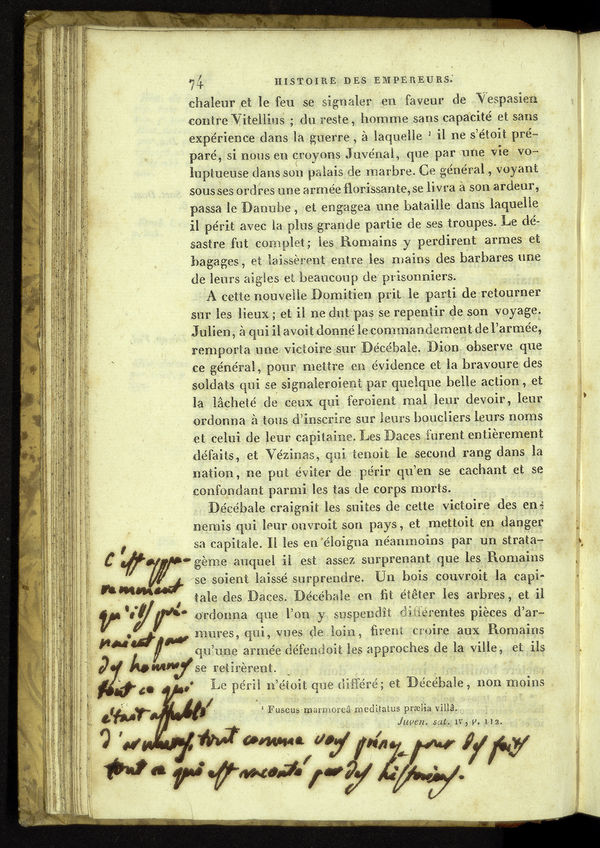 74 HISTOIRE DES EMPEREURS.
chaleur et le feu se signaler en faveur de Vespasien
contre Vitellius ; du reste, homme sans capacité et sans
expérience dans la guerre, à laquelle ¹ il ne s'étoit pré-
paré, si nous en croyons Juvénal, que par une vie vo-
luptueuse dans son palais de marbre. Ce général, voyant
sous ses ordres une armée florissante, se livra à son ardeur,
passa le Danube, et engagea une bataille dans laquelle
il périt avec la plus grande partie de ses troupes. Le dé-
sastre fut complet; les Romains y perdirent armes et
bagages, et laissèrent entre les mains des barbares une
de leurs aigles et beaucoup de prisonniers.
A cette nouvelle Domitien prit le parti de retourner
sur les lieux; et il ne dut pas se repentir de son voyage.
Julien, à qui il avoit donné le commandement de l'armée,
remporta une victoire sur Décébale. Dion observe que
ce général, pour mettre en évidence et la bravoure des
soldats qui se signaleroient par quelque belle action, et
la lâcheté de ceux qui feroient mal leur devoir, leur
ordonna à tous d'inscrire sur leurs boucliers leurs noms
et celui de leur capitaine. Les Daces furent entièrement
défaits, et Vézinas, qui tenoit le second rang dans la
nation, ne put éviter de périr qu'en se cachant et se
confondant parmi les tas de corps morts.
Décébale craignit les suites de cette victoire des en-
nemis qui leur ouvroit son pays, et mettoit en danger
sa capitale. Il les en éloigna néanmoins par un strata-
gème auquel il est assez surprenant que les Romains
se soient laissé surprendre. Un bois couvroit la capi-
tale des Daces. Décébale en fit étêter les arbres, et il
ordonna que l'on y suspendît différentes pièces d'ar-
mures, qui, vues de loin, firent croire aux Romains
qu'une armée défendoit les approches de la ville, et ils
se retirèrent.
Le péril n'étoit que différé; et Décébale, non moins
¹ Fuscus marmoreâ meditatus prælia villâ.
Juven. sat. IV, v. 112.
C'est appa-
remment
qu'ils pré-
naient pour
des hommes
tout ce qui
était affublé
d'armures, tout comme vous prénez pour des faits
tout ce qui est raconté par des historiens.